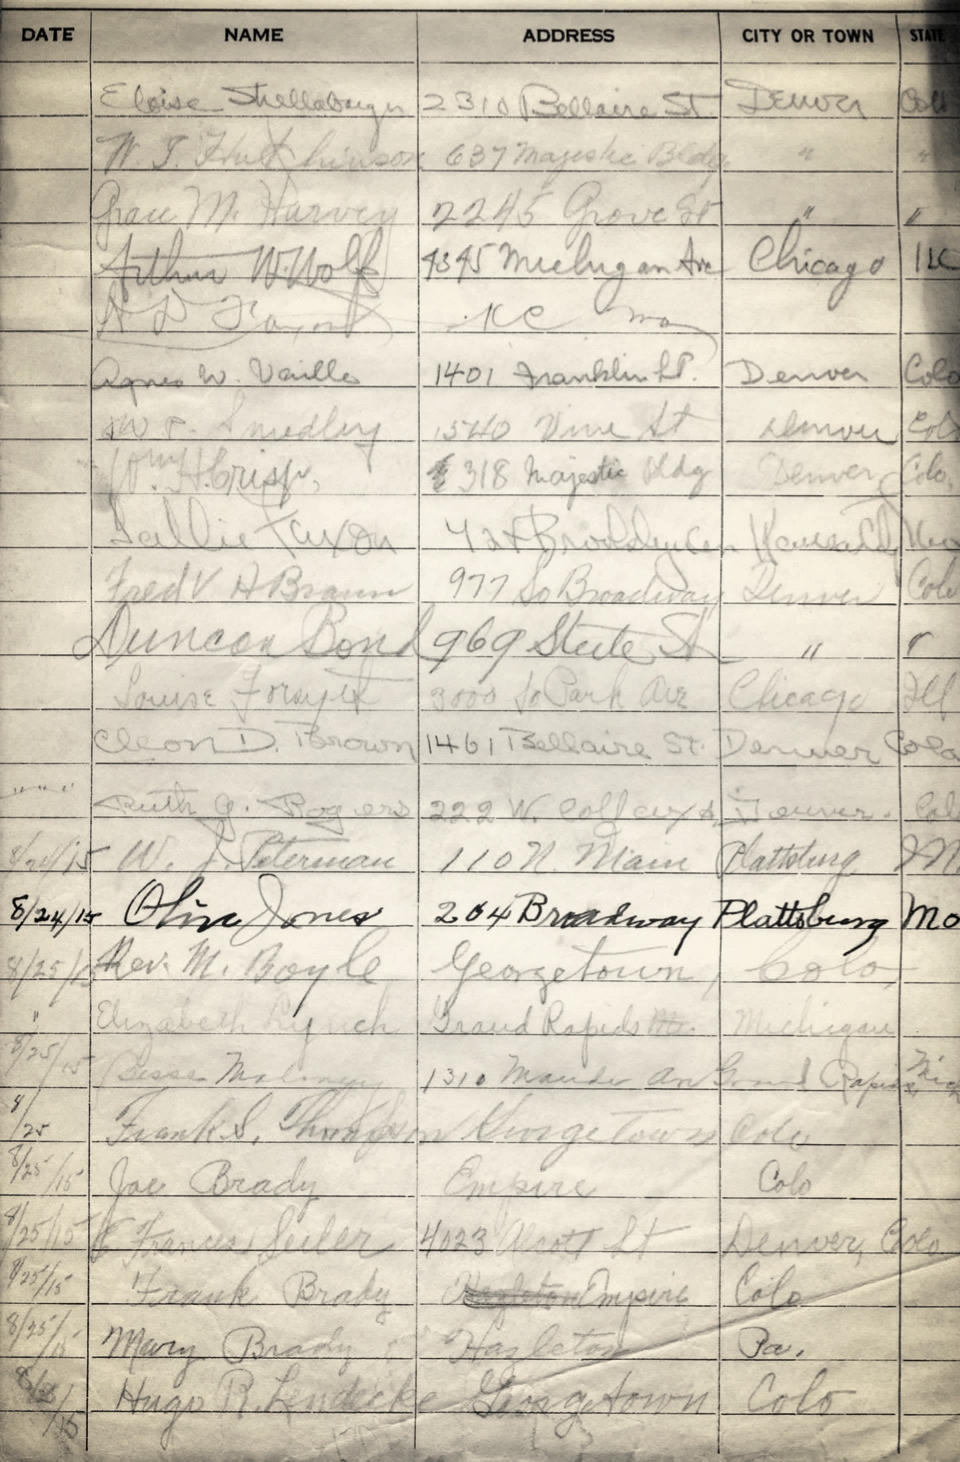 DATE NAME ADDRESS CITY OR TOWN STATE
Eloise Shellabarger 2310 Bellaire St. Denver Colo
W. T. Hutchinson 637 Majestic Bldg. " "
Grace M. Harvey 2245 Grove St " "
Arthur W. Wolf 4345 Michigan Ave Chicago Ill
KC Mo
Agnes W. Vaille 1401 Franklin St. Denver Colo
Smedley 1540 Vine St Denver Colo
Wm H. Crisp, 318 Majestic Bldg Denver, Colo.
Sallie
Fred V H Braun 977 So Broadway Denver Colo
Duncan Bond 969 Steele St " "
Louise Forsyth 3000 So Park Ave Chicago Ill
Cleon D. Brown 1461 Bellaire St. Denver Colo
" " " Ruth G. Rogers 222 W. Colfax Denver. Col
8/24/15 W. J. Peterman 110 N. Main Plattsburg M
8/24/15 Olive Jones 204 Broadway Plattsburg Mo
8/25/15 Rev. M. Boyle Georgetown, Colo,
" Elizabeth Lynch Grand Rapids Michigan
8/25/15 Bessie 1310 Grand Rapids, Mich
8/25 Frank S. Thompson Georgetown Colo
8/25/15 Joe Brady Empire Colo
8/25/15 Frances Seiler 4023 Alcott St Denver, Colo
8/25/15 Frank Brady Hazleton Empire Colo
8/25/15 Mary Brady Hazleton Pa.
Hugo R. Lendecke Georgetown Colo